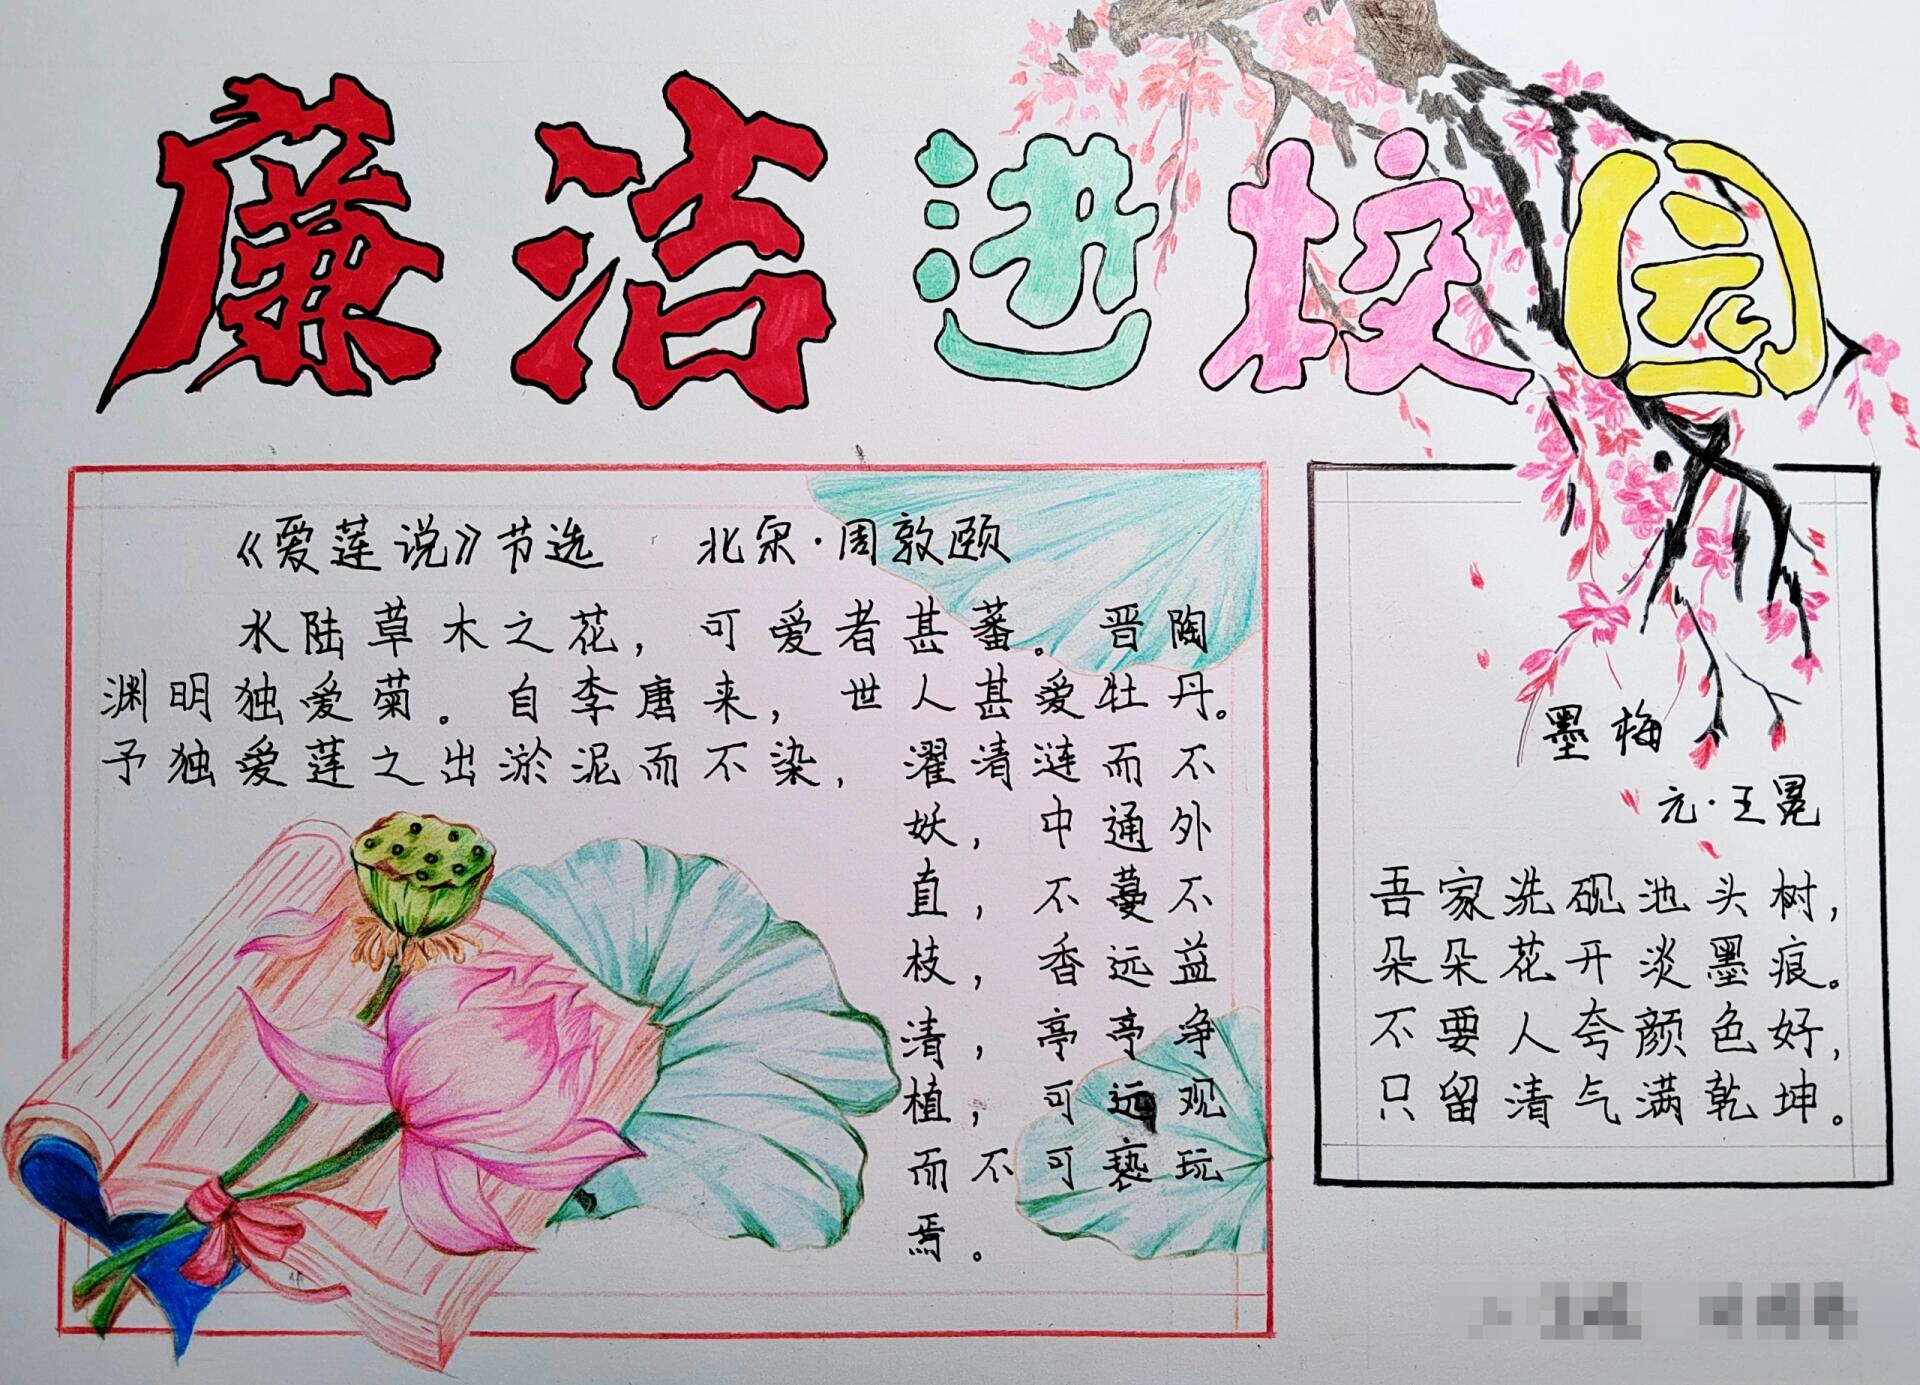 廉洁进校园
《爱莲说》节选 北宋·周敦颐
水陆草木之花，可爱者甚蕃。晋陶
渊明独爱菊。自李唐来，世人甚爱牡丹。
予独爱莲之出淤泥而不染，濯清涟而不
妖，中通外
直，不蔓不
枝，香远益
清，亭亭净
植，可远观
而不可亵玩
焉。
墨梅
元·王冕
吾家洗砚池头树，
朵朵花开淡墨痕。
不要人夸颜色好，
只留清气满乾坤。